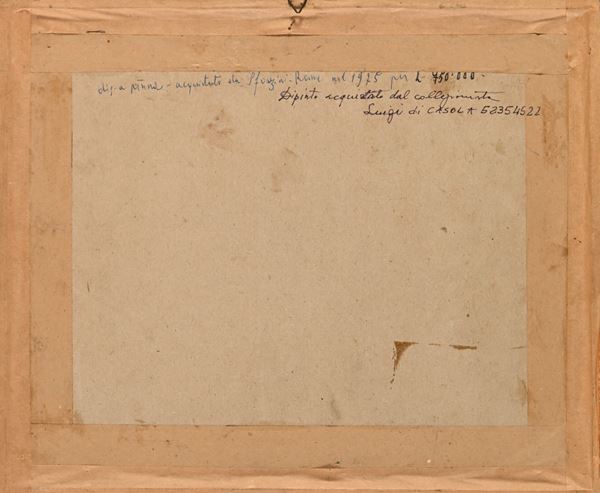 dis. a penna - acquistato da Sforzini - Roma nel 1975 per £ 750.000 -
Dipinto acquistato dal collezionista
Luigi di CASOLA 52354522